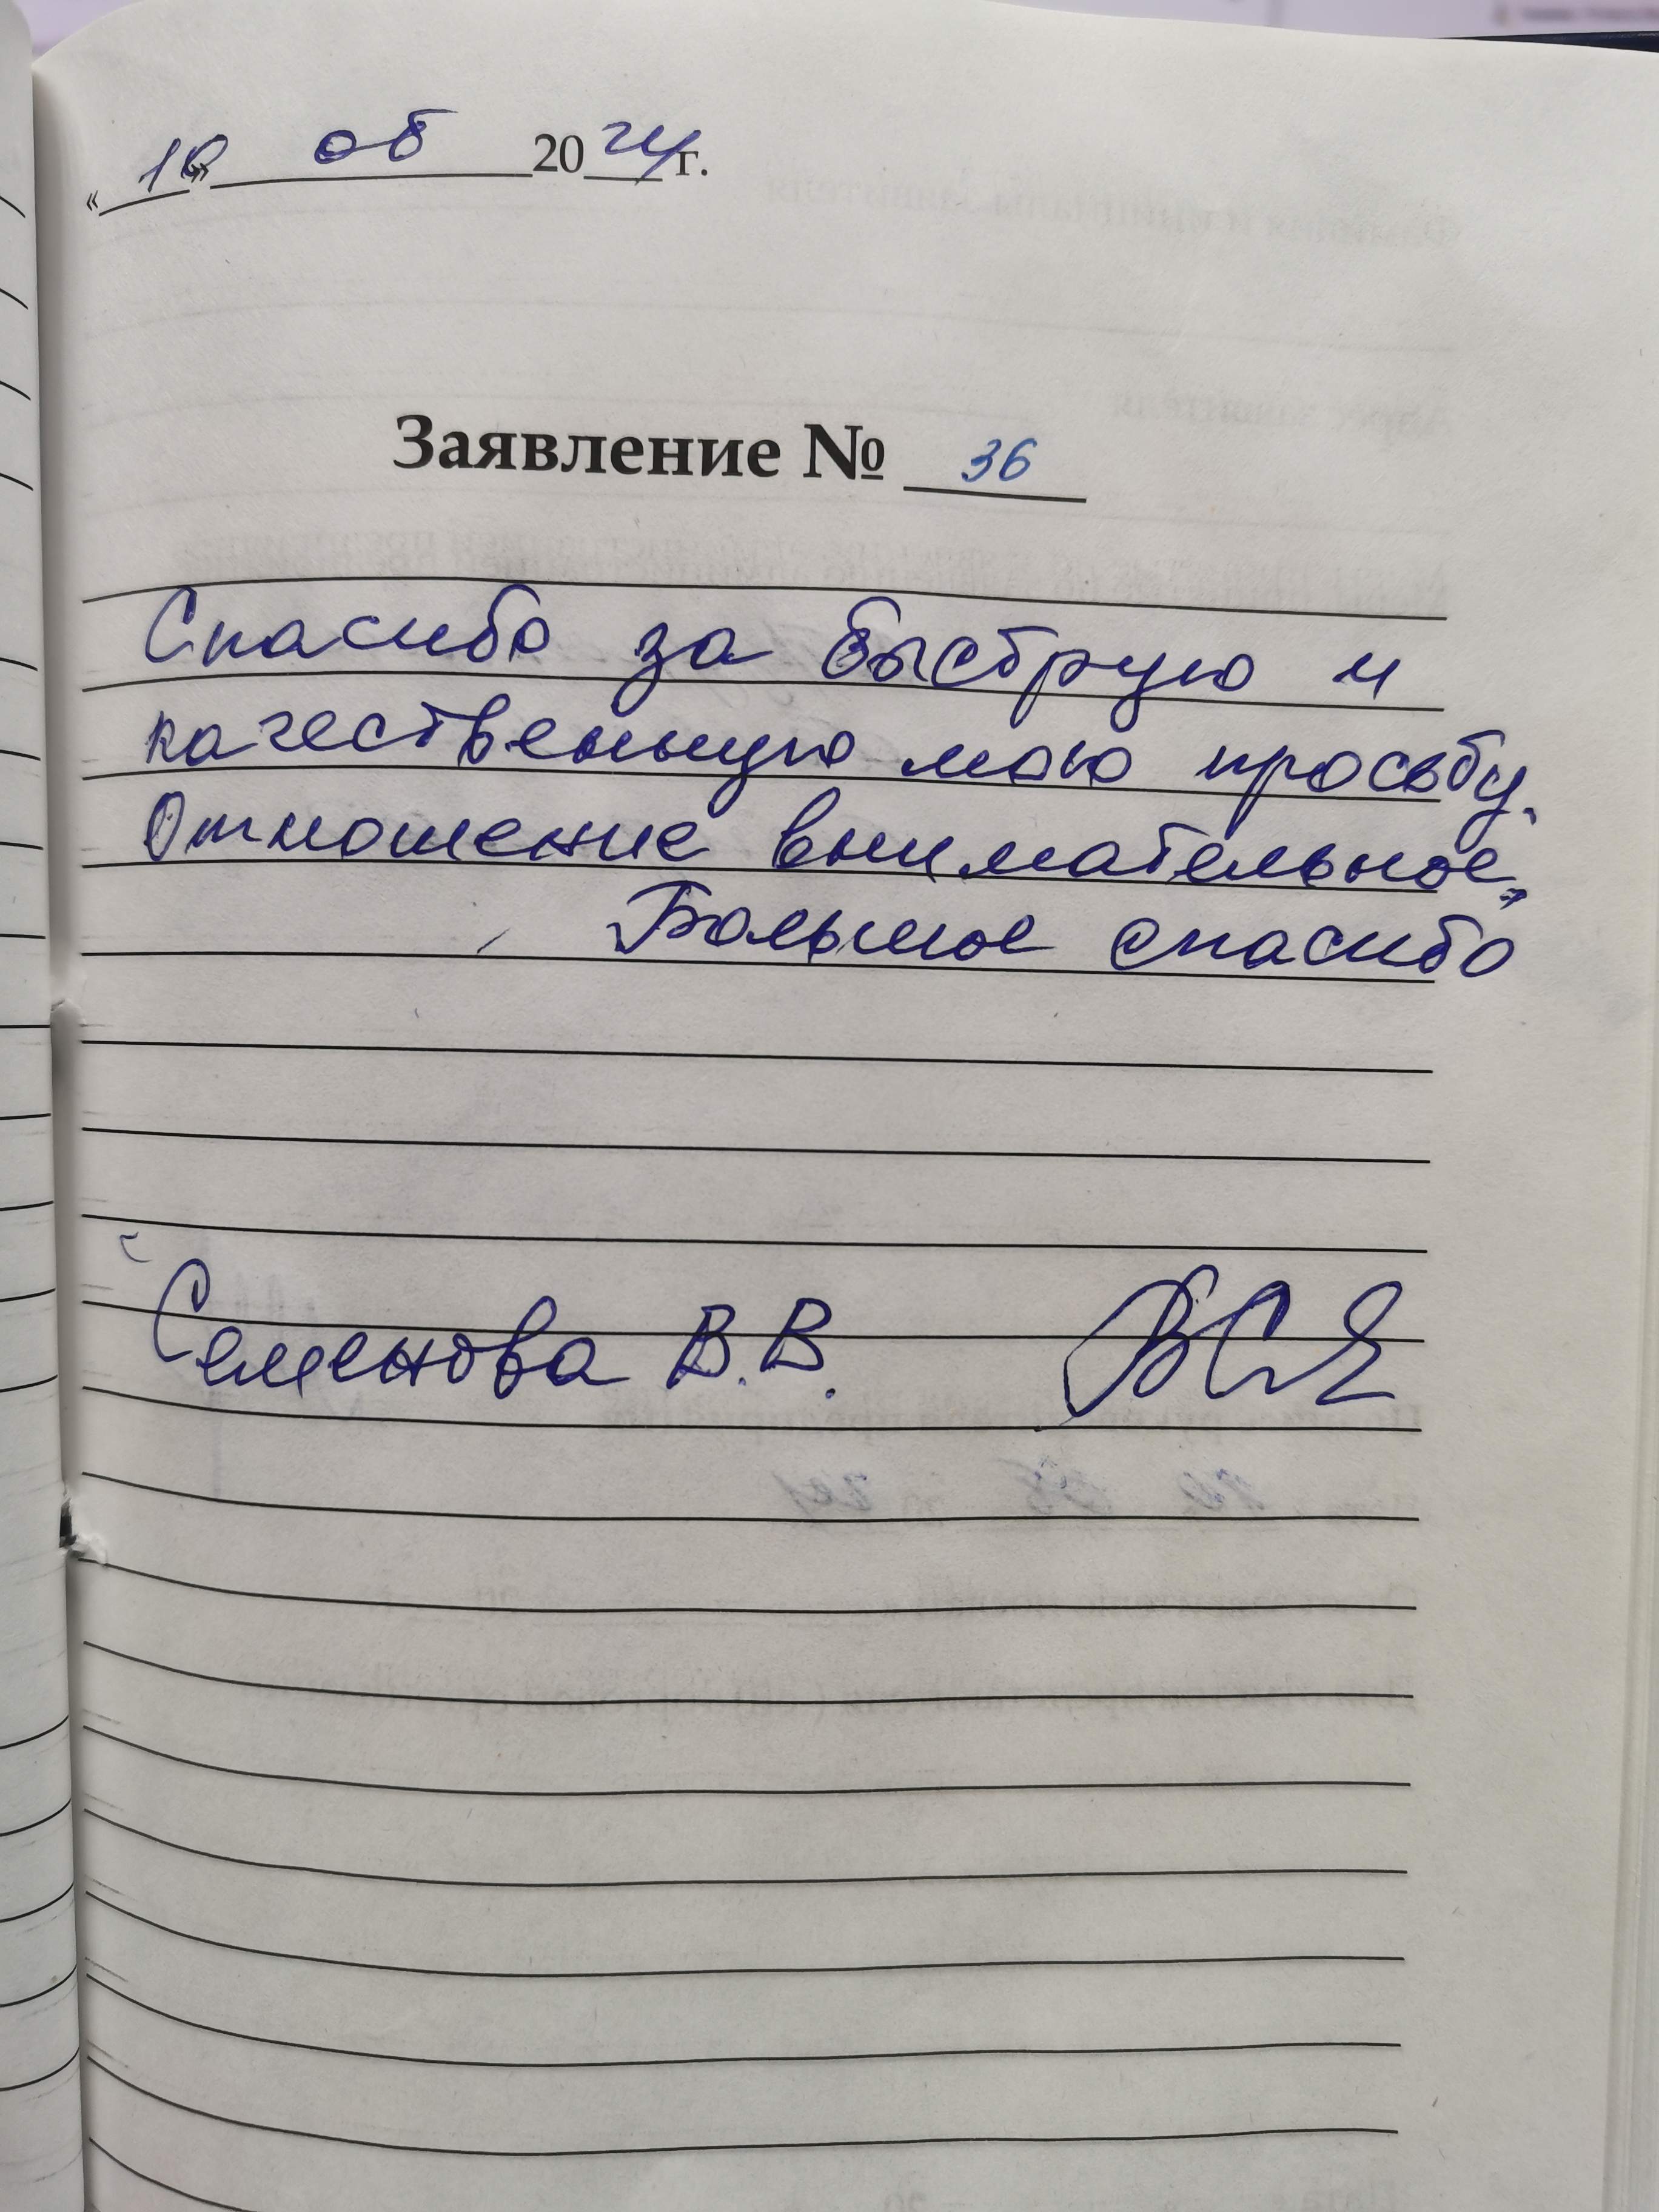 «10» 06 2024 г.
Заявление № 36
Спасибо за быструю и
качественную мою просьбу.
Отношение внимательное,
Большое спасибо
Семенова В.В.